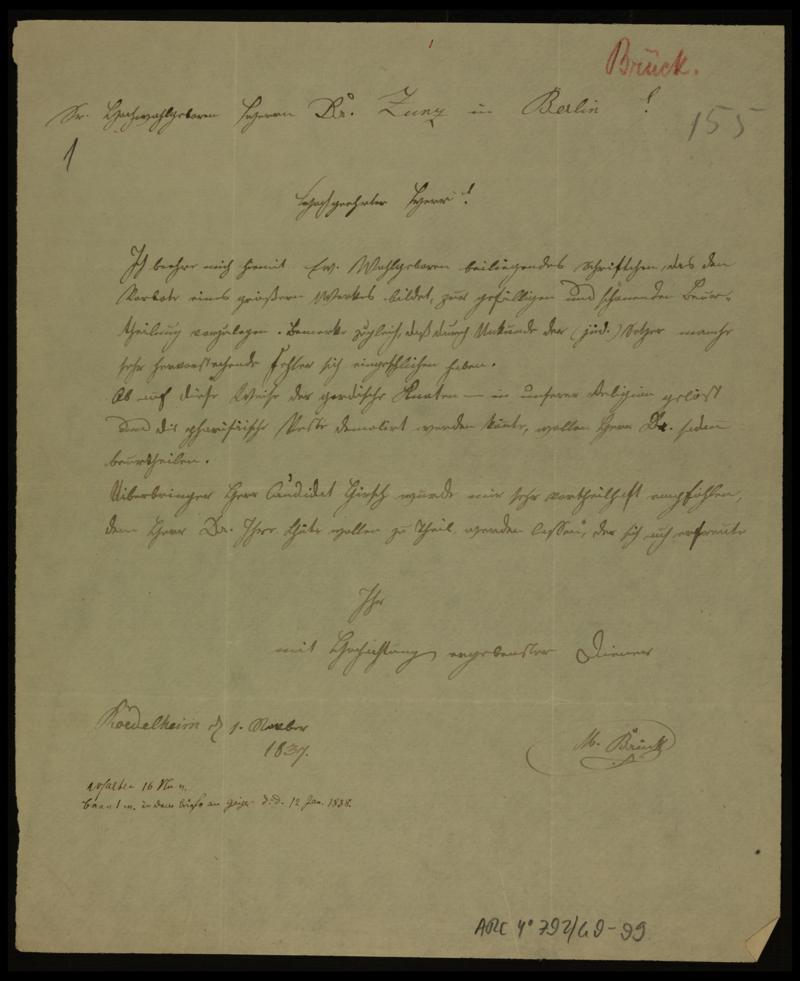 Brück.
155
Sr. Hochwohlgeboren Herrn Dr. Zunz in Berlin!
1
Hochgeehrter Herr!
Ich beehre mich hiemit Ew. Wohlgeboren beiliegendes Schriftchen, das den
Vorbote eines größern Werkes bildet, zur gefälligen und schonenden Beur-
theilung vorzulegen. Bemerke zugleich, daß durch Unkunde der (jüd.) Setzer manche
sehr hervorstechende Fehler sich eingeschlichen haben.
Ob auf diese Weise der gordische Knoten – in unserer Religion gelöst
und die pharisäische Veste demolirt werden könte, wollen Herr Dr.
beurtheilen.
Uiberbringer Herr Candidat Hirsch wurde mir sehr vortheilhaft empfohlen,
dem Herr Dr. Ihre Güte wollen zu Theil werden lassen, der sich auch erfreute
Ihr
mit Hochachtung ergebenster Diener
Roedelheim d 1. Novber
1837.
M. Brück
erhalten 16 Nov.
beantw. in dem Briefe an Geiger d.d. 12 Jan. 1838.
ARC 4° 792/G9-99